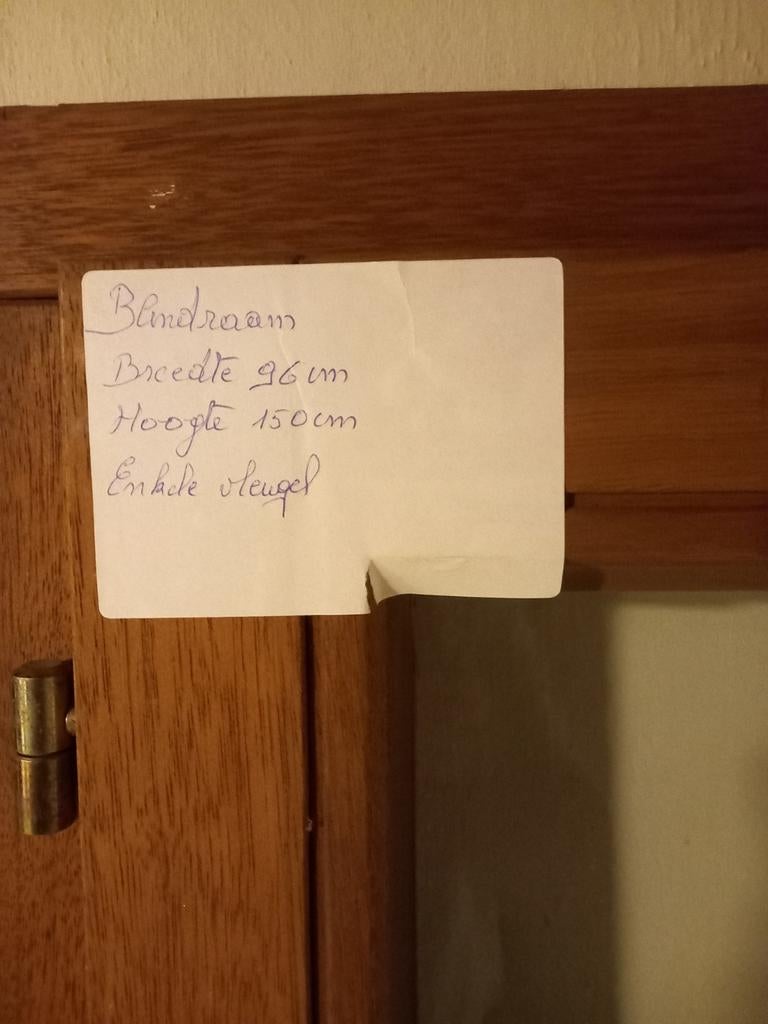 Blindraam
Breedte 96 cm
Hoogte 150 cm
Enkele vleugel